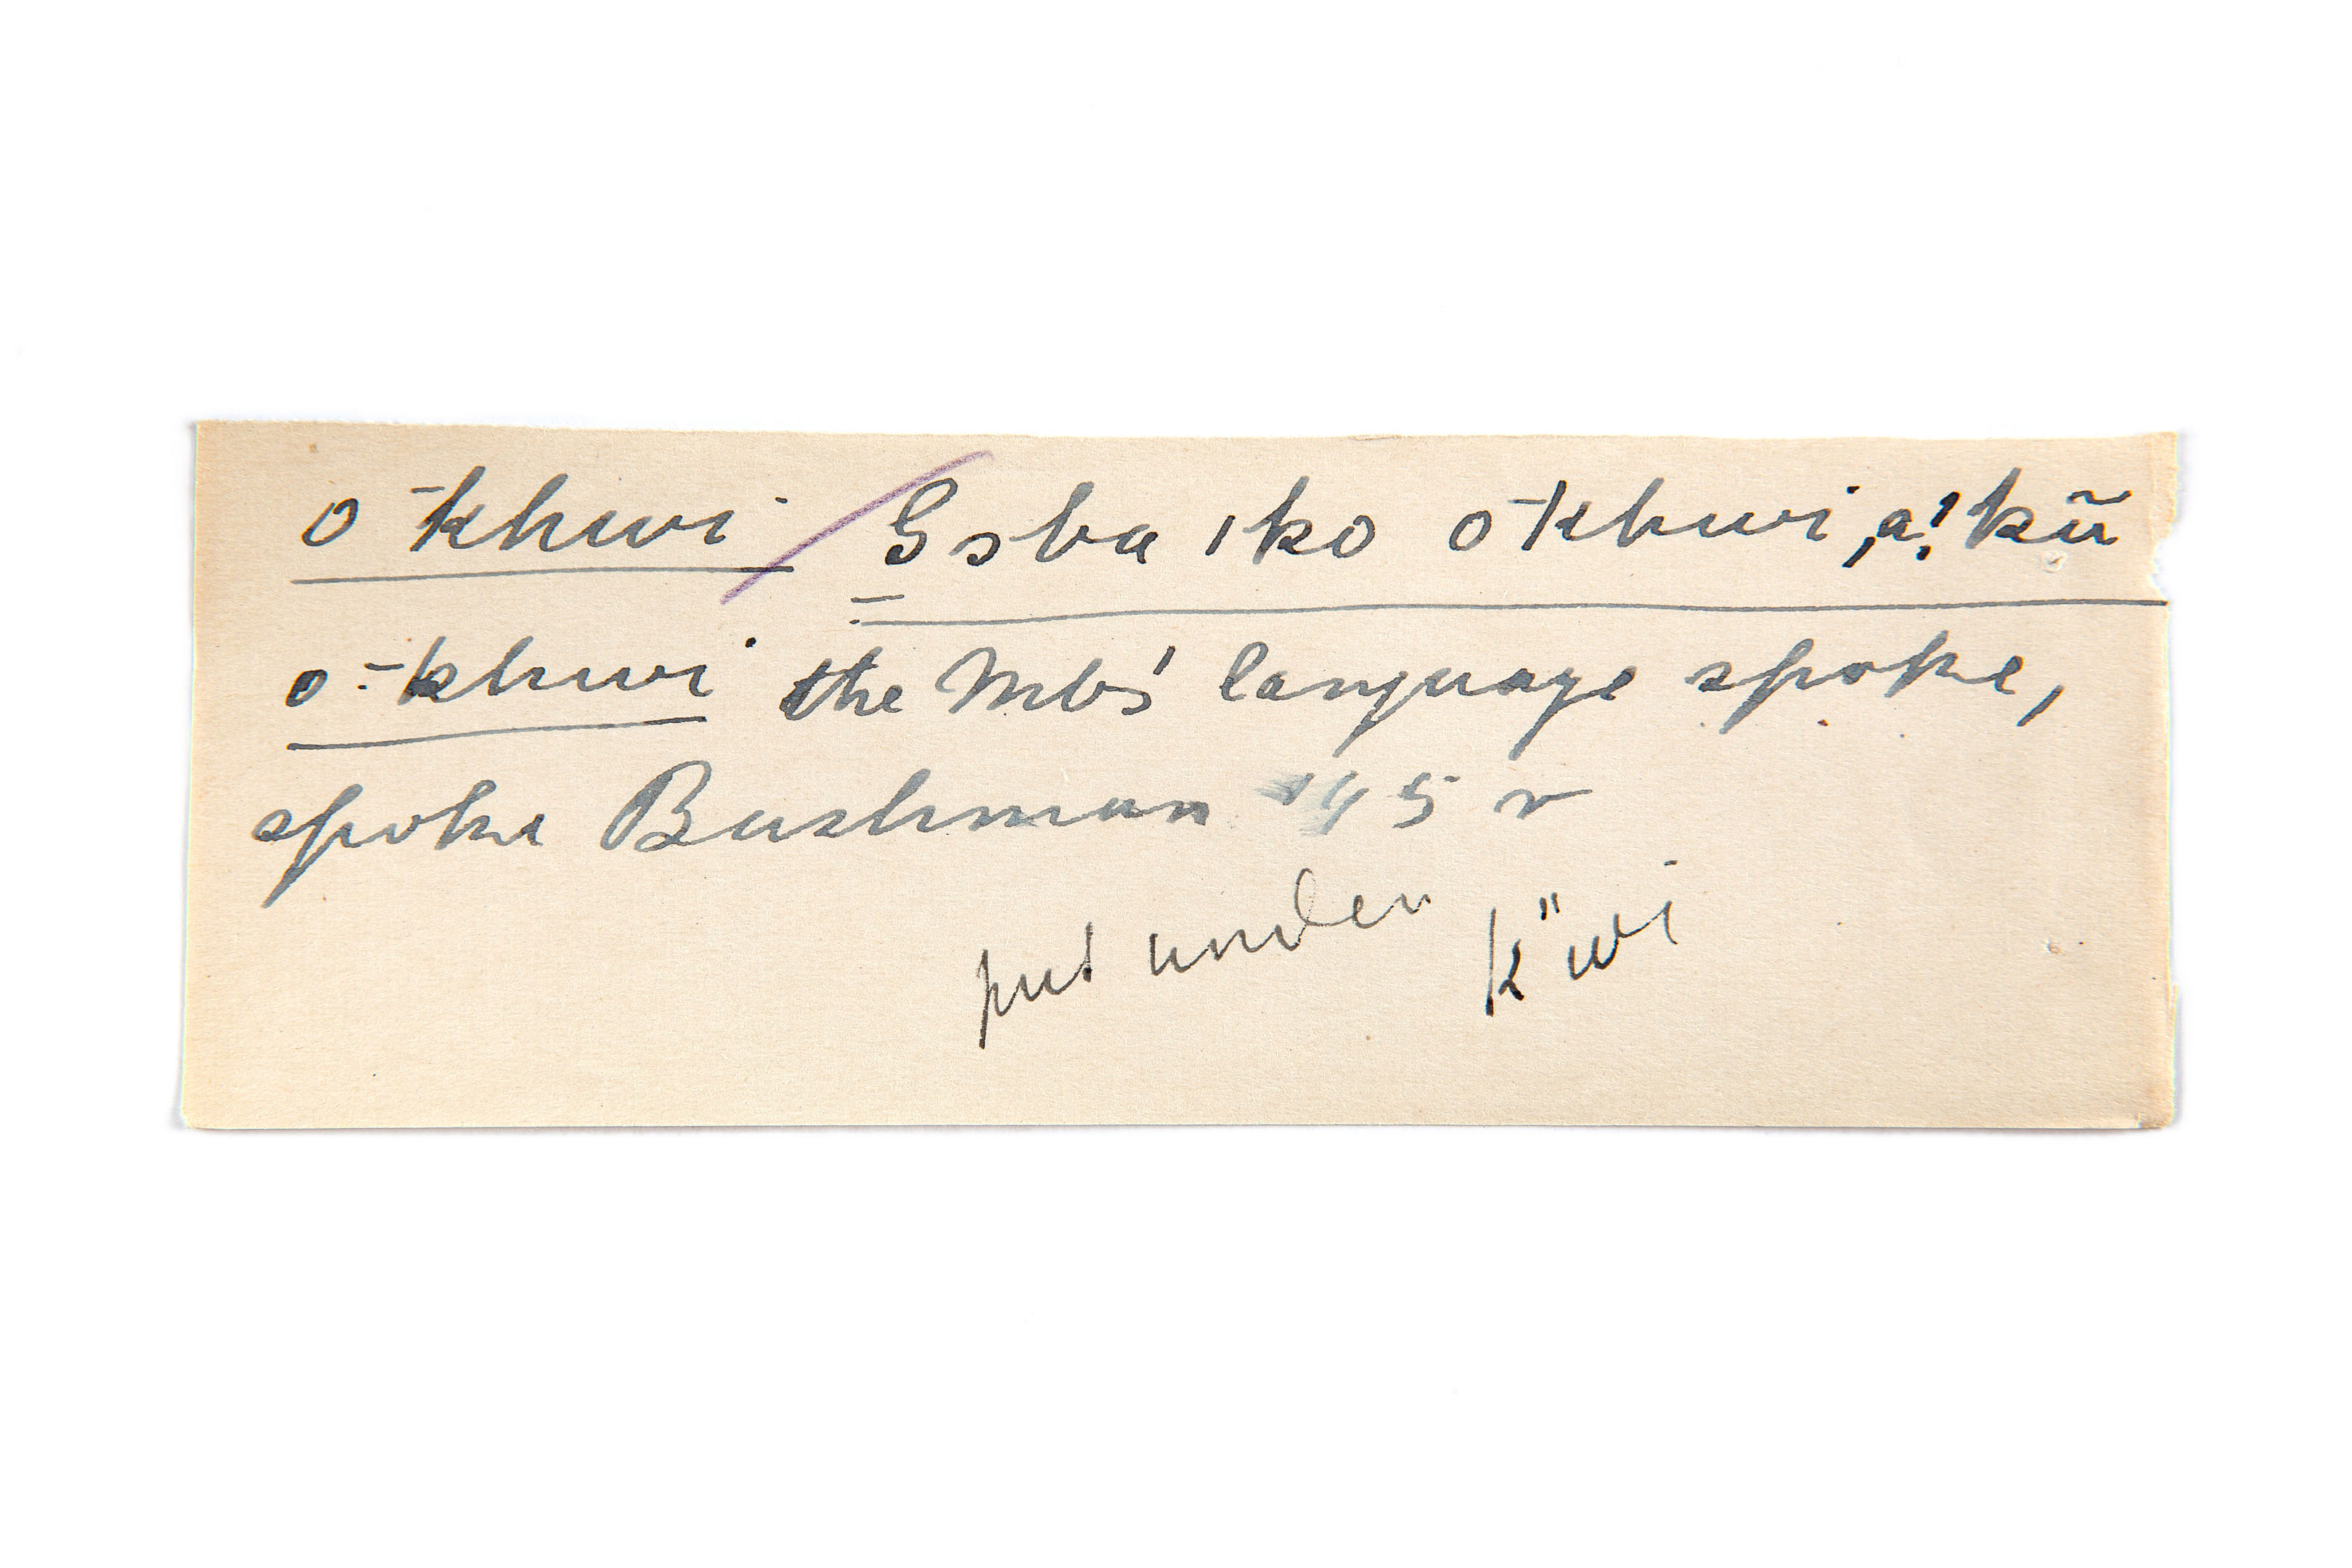 o ̄khwi / Gsba ıko o ̄khwi, a!kũ
o ̄khwi the Mbs' language spoke,
spoke Bushman 5 r
put under k"wi